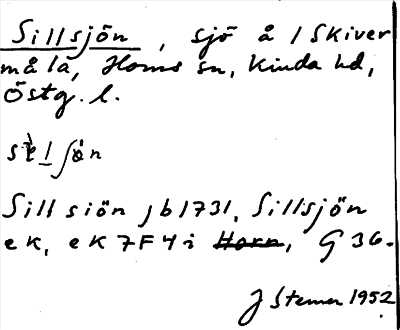 Sillsjön, sjö å / Skiver
måla, Horns sn, Kinda hd,
Östg. l.
Sill siön jb 1731, Sillsjön
ek, ek 7F4i Horn, G 36.
J Stemer 1952